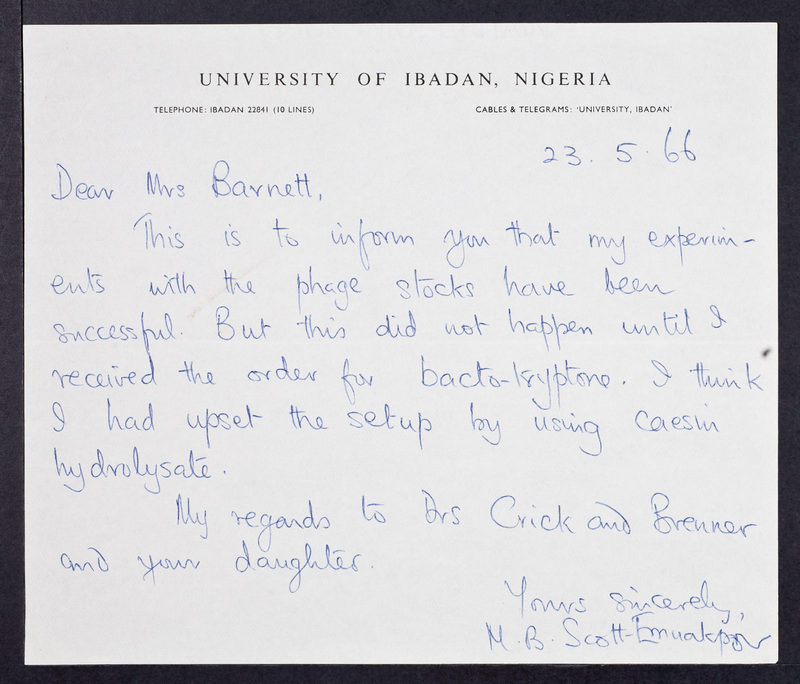 UNIVERSITY OF IBADAN, NIGERIA
TELEPHONE: IBADAN 22841 (10 LINES) CABLES & TELEGRAMS: 'UNIVERSITY, IBADAN'
23. 5. 66
Dear Mrs Barnett,
This is to inform you that my experim-
ents with the phage stocks have been
successful. But this did not happen until I
received the order for bacto-tryptone. I think
I had upset the setup by using caesin
hydrolysate.
My regards to Drs Crick and Brenner
and your daughter.
Yours sincerely,
M. B. Scott-Emuakpor